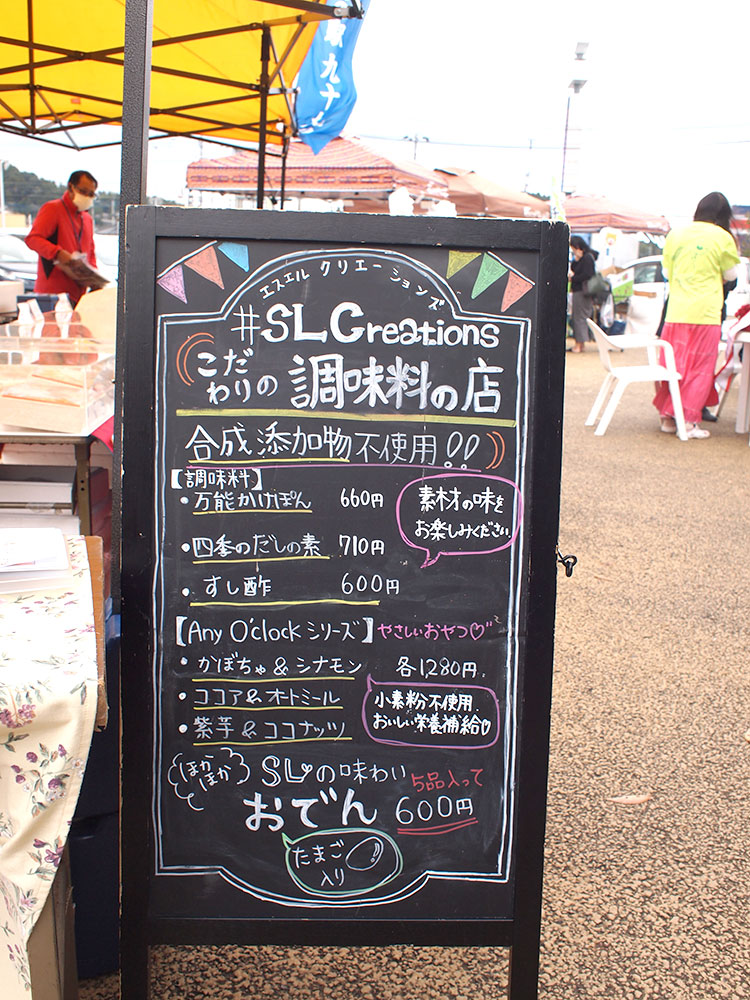 九十
エスエル クリエーションズ
#SLCreations
こだわりの 調味料の店
合成添加物不使用!!
【調味料】
・万能かけぽん 660円
素材の味を
お楽しみください
・四季のだしの素 710円
・すし酢 600円
【Any O'clockシリーズ】やさしいおやつ♡
・かぼちゃ&シナモン 各1,280円
・ココア&オートミール
・紫芋&ココナッツ
小素粉不使用
おいしい栄養補給♡
ほかほか
SLの味わい 5品入って
おでん 600円
たまご
入り